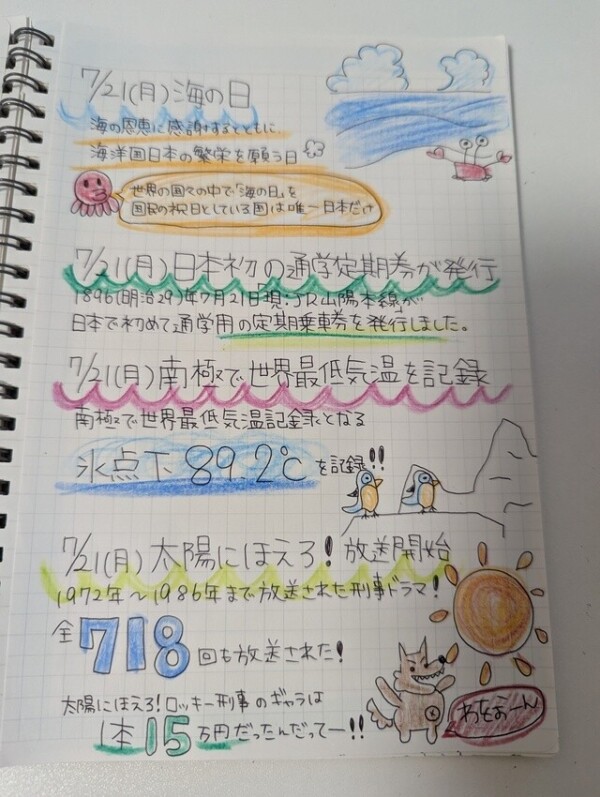 7/21(月)海の日
海の恩恵に感謝するとともに、
海洋国日本の繁栄を願う日
世界の国々の中で「海の日」を
国民の祝日としている国は唯一日本だけ
7/21(月)日本初の通学定期券が発行
1896(明治29)年7月21日現・JR山陽本線が
日本で初めて通学用の定期乗車券を発行しました。
7/21(月)南極で世界最低気温を記録
南極で世界最低気温記録となる
氷点下89.2℃を記録!!
7/21(月)太陽にほえろ!放送開始
1972年〜1986年まで放送された刑事ドラマ!
全718回も放送された!
太陽にほえろ!ロッキー刑事のギャラは
1本15万円だったんだってー!!
わをおーん